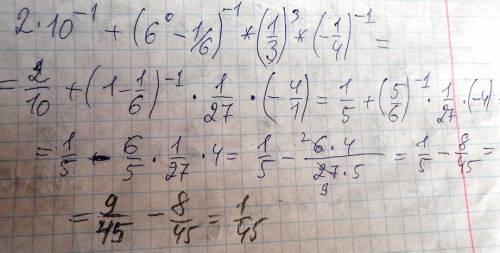 2·10⁻¹ + (6⁰ - 1/6)⁻¹ * (1/3)³ * (-1/4)⁻¹ =
= 2/10 + (1 - 1/6)⁻¹ · 1/27 · (-4/1) = 1/5 + (5/6)⁻¹ · 1/27 · (-4)
= 1/5 - 6/5 · 1/27 · 4 = 1/5 - ²6·4/27·5 ₉ = 1/5 - 8/45 =
= 9/45 - 8/45 = 1/45